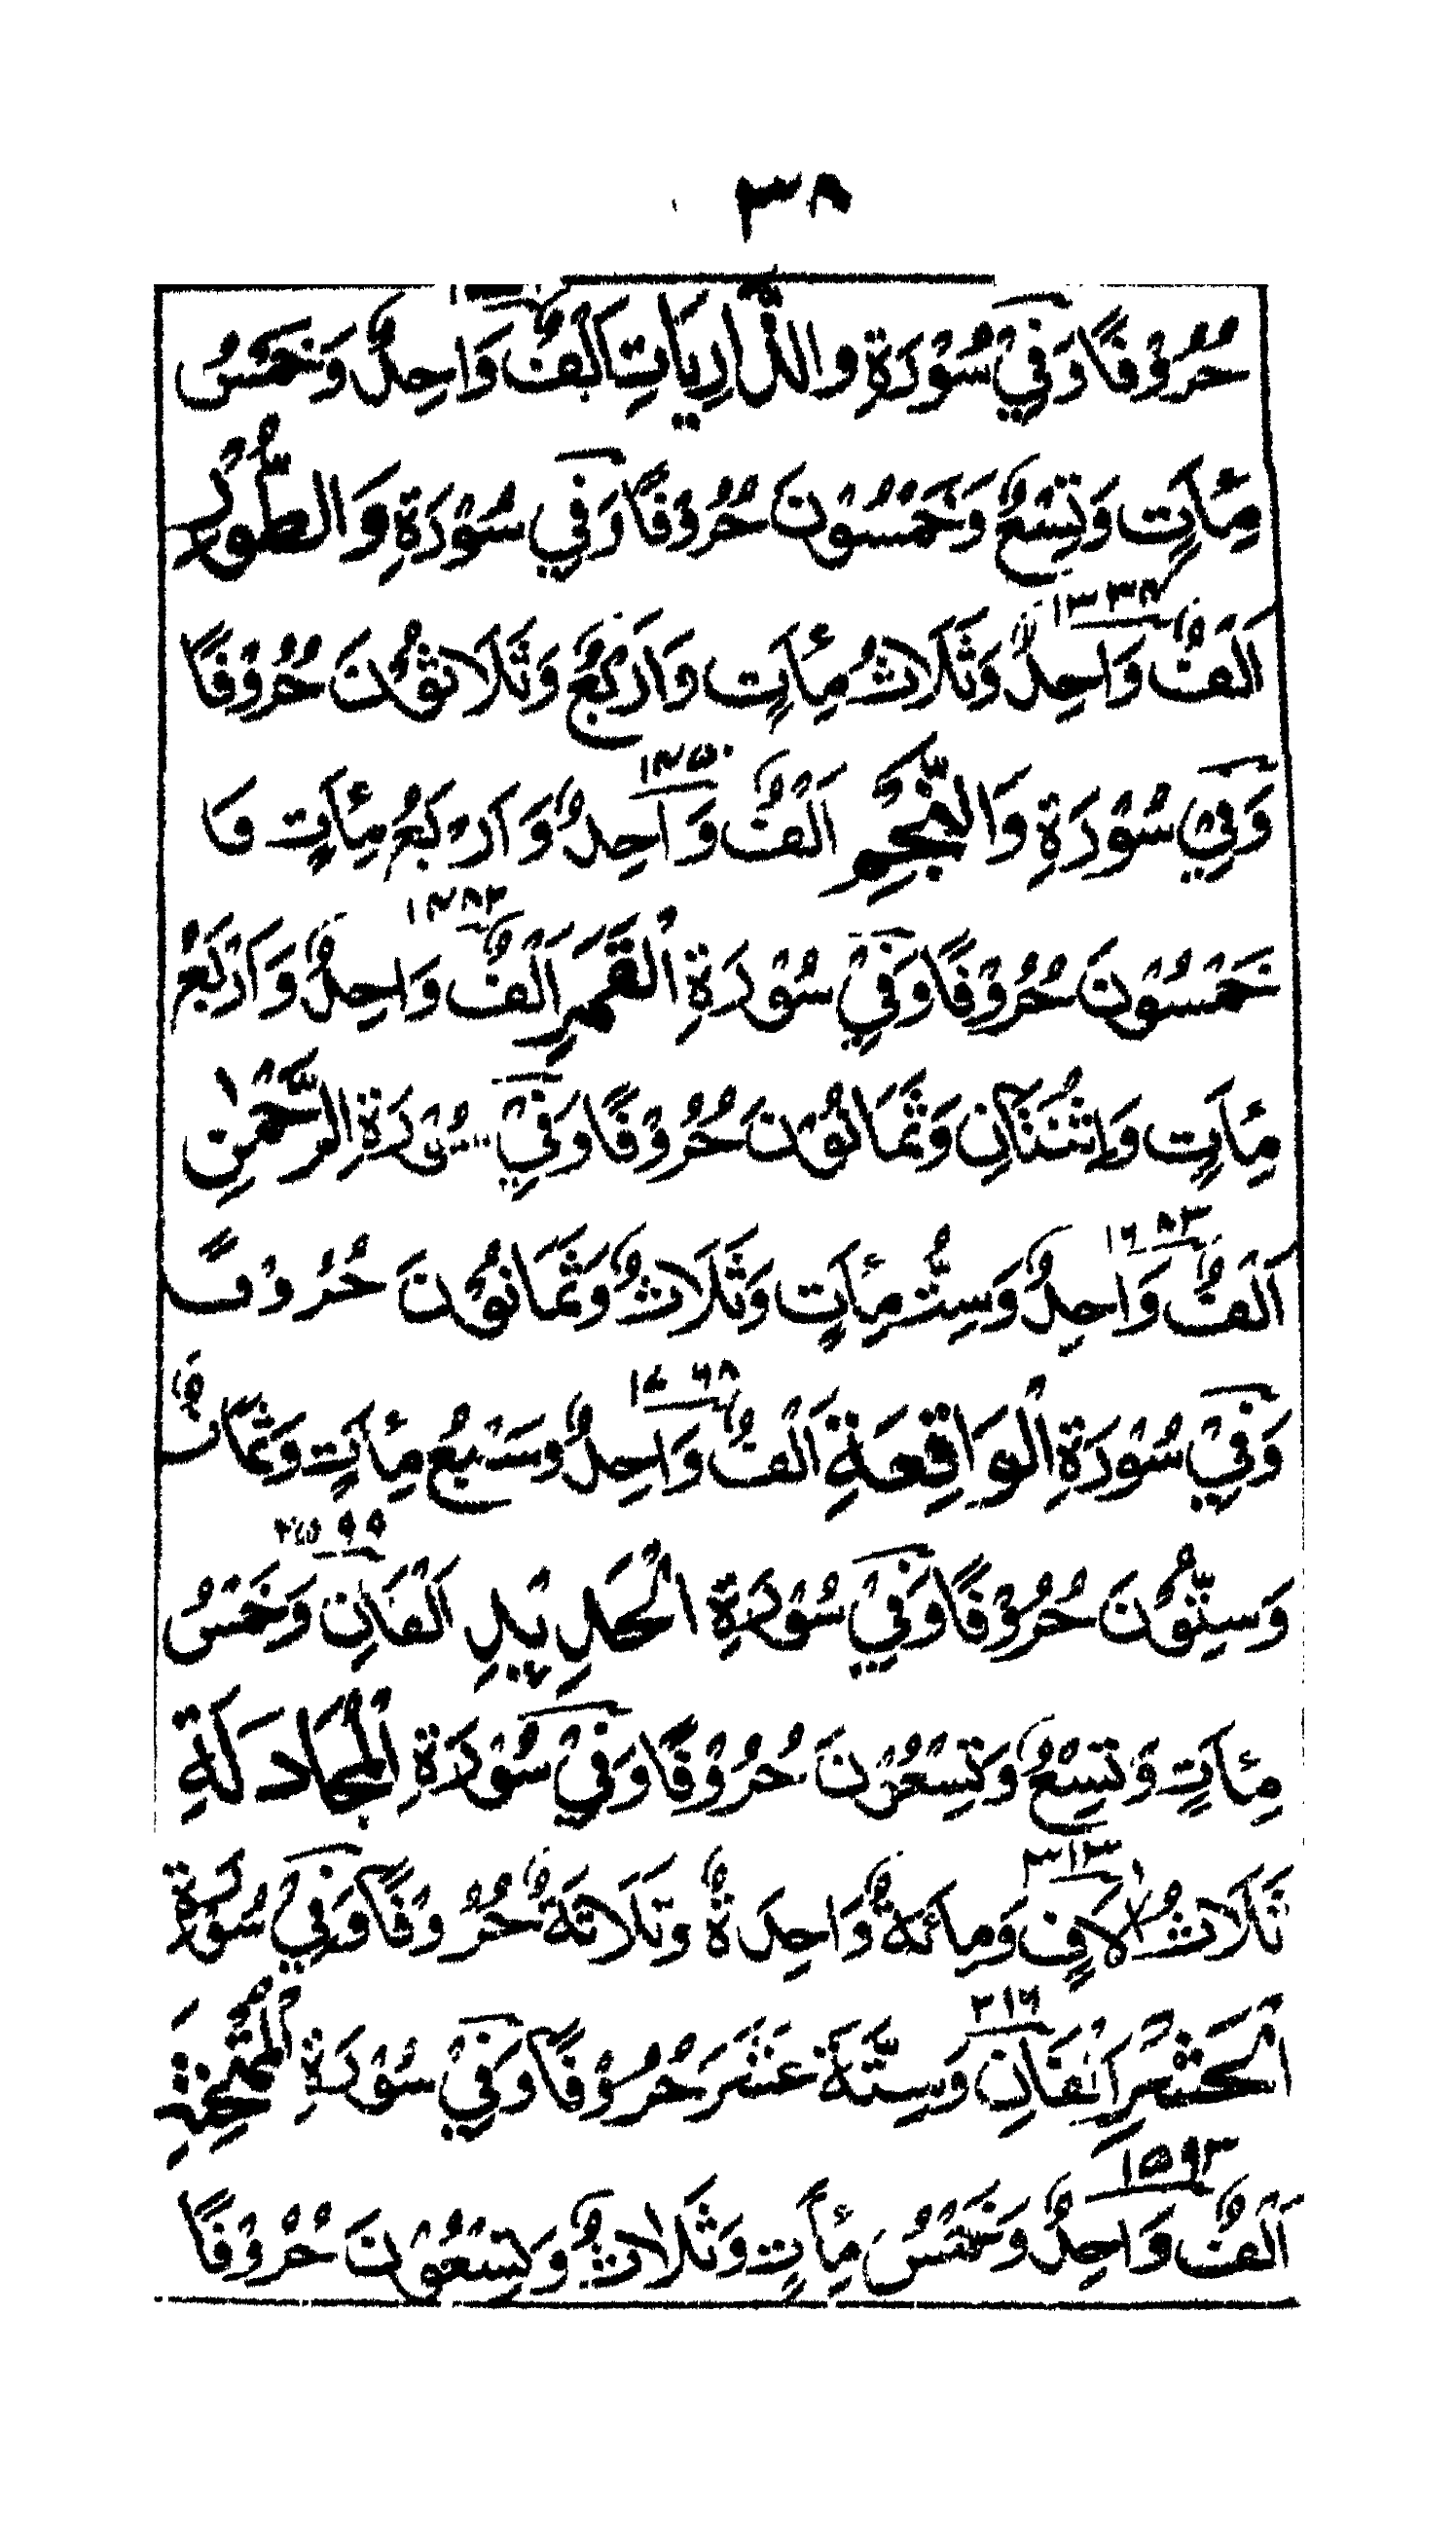 ٣٨
حُرُوْفًا وَفِيْ سُوْرَةِ والذَّارِيَاتِ اَلْفٌ وَاحِدٌ وَخَمْسُ
مِئَاَتٍ وَتِسْعٌ وَخَمْسُوْنَ حُرُوْفًا وَفِي سُوْرَةِ وَالطُّوْرِ
١٣٣٤
اَلْفٌ وَاحِدٌ وَثَلَاثُ مِئَاَتٍ وَاَرْبَعٌ وَثَلَاثُوْنَ حُرُوْفًا
١٤٥٠
وَفِيْ سُوْرَةِ وَالنَّجْمِ اَلْفٌ وَاَحِدٌ وَاَرْبَعُ مِئَاَتٍ وَ
١٤٨٢
خَمْسُوْنَ حُرُوْفًا وَفِيْ سُوْرَةِ الْقَمَرِ اَلْفٌ وَاحِدٌ وَاَرْبَعُ
مِئَاَتٍ وَاِثْنَتَانِ وَثَمَانُوْنَ حُرُوْفًا وَفِيْ سُوْرَةِ الرَّحْمٰنِ
١٦٨٣
اَلْفٌ وَاحِدٌ وَسِتُّ مِئَاَتٍ وَثَلَاثٌ وَثَمَانُوْنَ حُرُوْفًا
١٧٦٨
وَفِيْ سُوْرَةِ الْوَاقِعَةِ اَلْفٌ وَاحِدٌ وَسَبْعُ مِئَاَتٍ وَثَمَانٌ
٢٥٩٩
وَسِتُّوْنَ حُرُوْفًا وَفِيْ سُوْرَةِ الْحَدِيْدِ اَلْفَانِ وَخَمْسُ
مِئَاَتٍ وَتِسْعٌ وَتِسْعُوْنَ حُرُوْفًا وَفِيْ سُوْرَةِ الْمُجَادَلَةِ
٣١٣
ثَلَاثُ اٰلَافٍ وَمِائَةٌ وَاحِدَةٌ وَثَلَاثَةٌ حُرُوْفًا وَفِيْ سُوْرَةِ
٢١٦
الْحَشْرِ اَلْفَانِ وَسِتَّةَ عَشَرَ حُرُوْفًا وَفِيْ سُوْرَةِ الْمُمْتَحِنَةِ
١٥٩٣
اَلْفٌ وَاحِدٌ وَخَمْسُ مِئَاَتٍ وَثَلَاثٌ وَتِسْعُوْنَ حُرُوْفًا